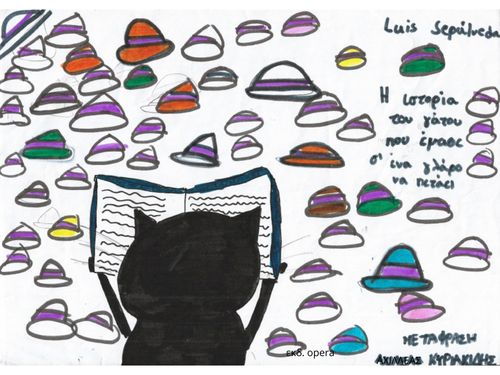 Luis Sepúlveda
Η ιστορία
του γάτου
που έμαθε
σ' ένα γλάρο
να πετάει
ΜΕΤΑΦΡΑΣΗ
ΑΧΙΛΛΕΑΣ ΚΥΡΙΑΚΙΔΗΣ
εκδ. opera